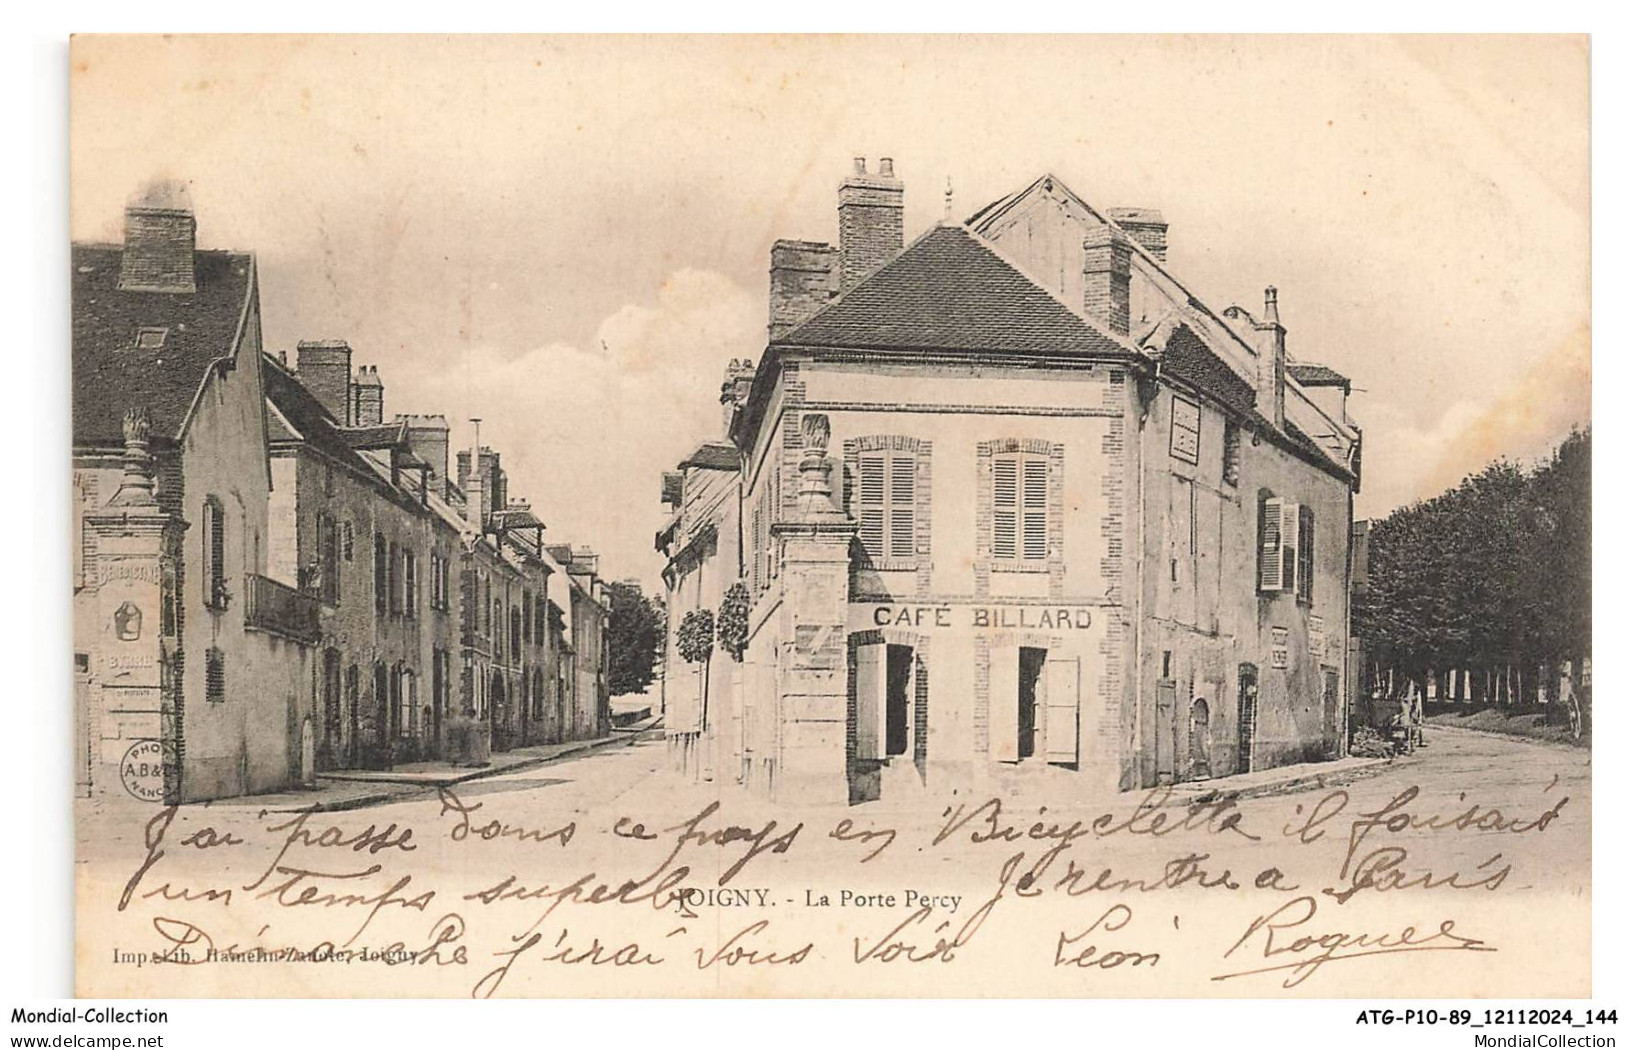 BÉNÉDICTINE
BYRRH
CAFÉ BILLARD
PHOT
A.B & C
NANCY
J'ai passé dans ce pays en Bicyclette il faisait
un temps superbe Je rentre a Paris
JOIGNY. - La Porte Percy
Dimanche j'irai vous voir Léon Roguee
Imp.-Lib. Hamelin-Zanote, Joigny
Mondial-Collection
ebay.com
ATG-P10-89_12112024_144
MondialCollection